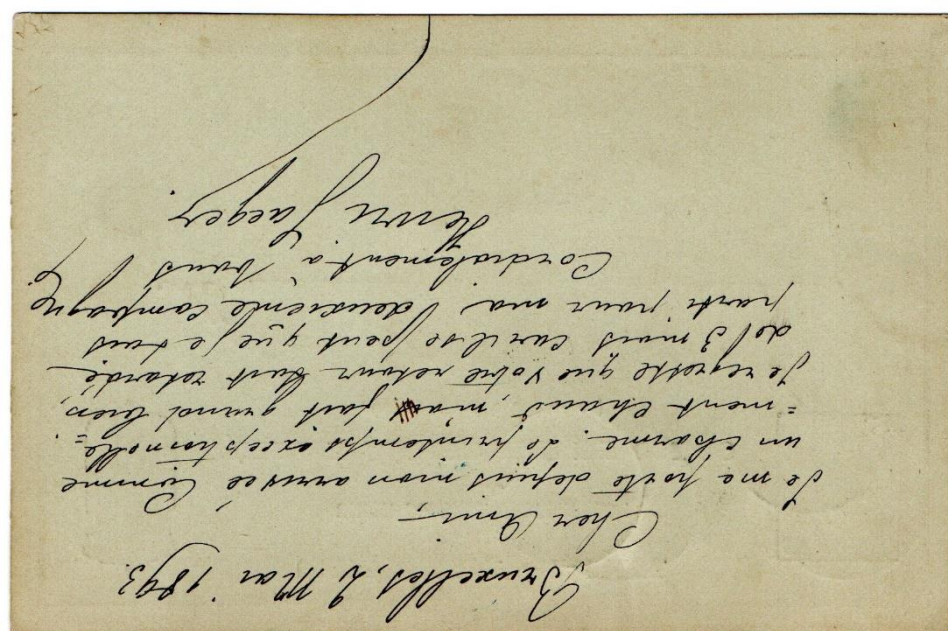 Bruxelles, 2 Mai 1893.
Cher Ami,
Je me porte depuis mon arrivée comme
un charme. Le printemps exceptionnelle=
=ment chaud, m'a fait grand bien,
Je regrette que votre retour soit retardé
de 3 mois car il se peut que je sois
parti pour ma deuxième campagne
Cordialement à vous
Henri Jaeger.